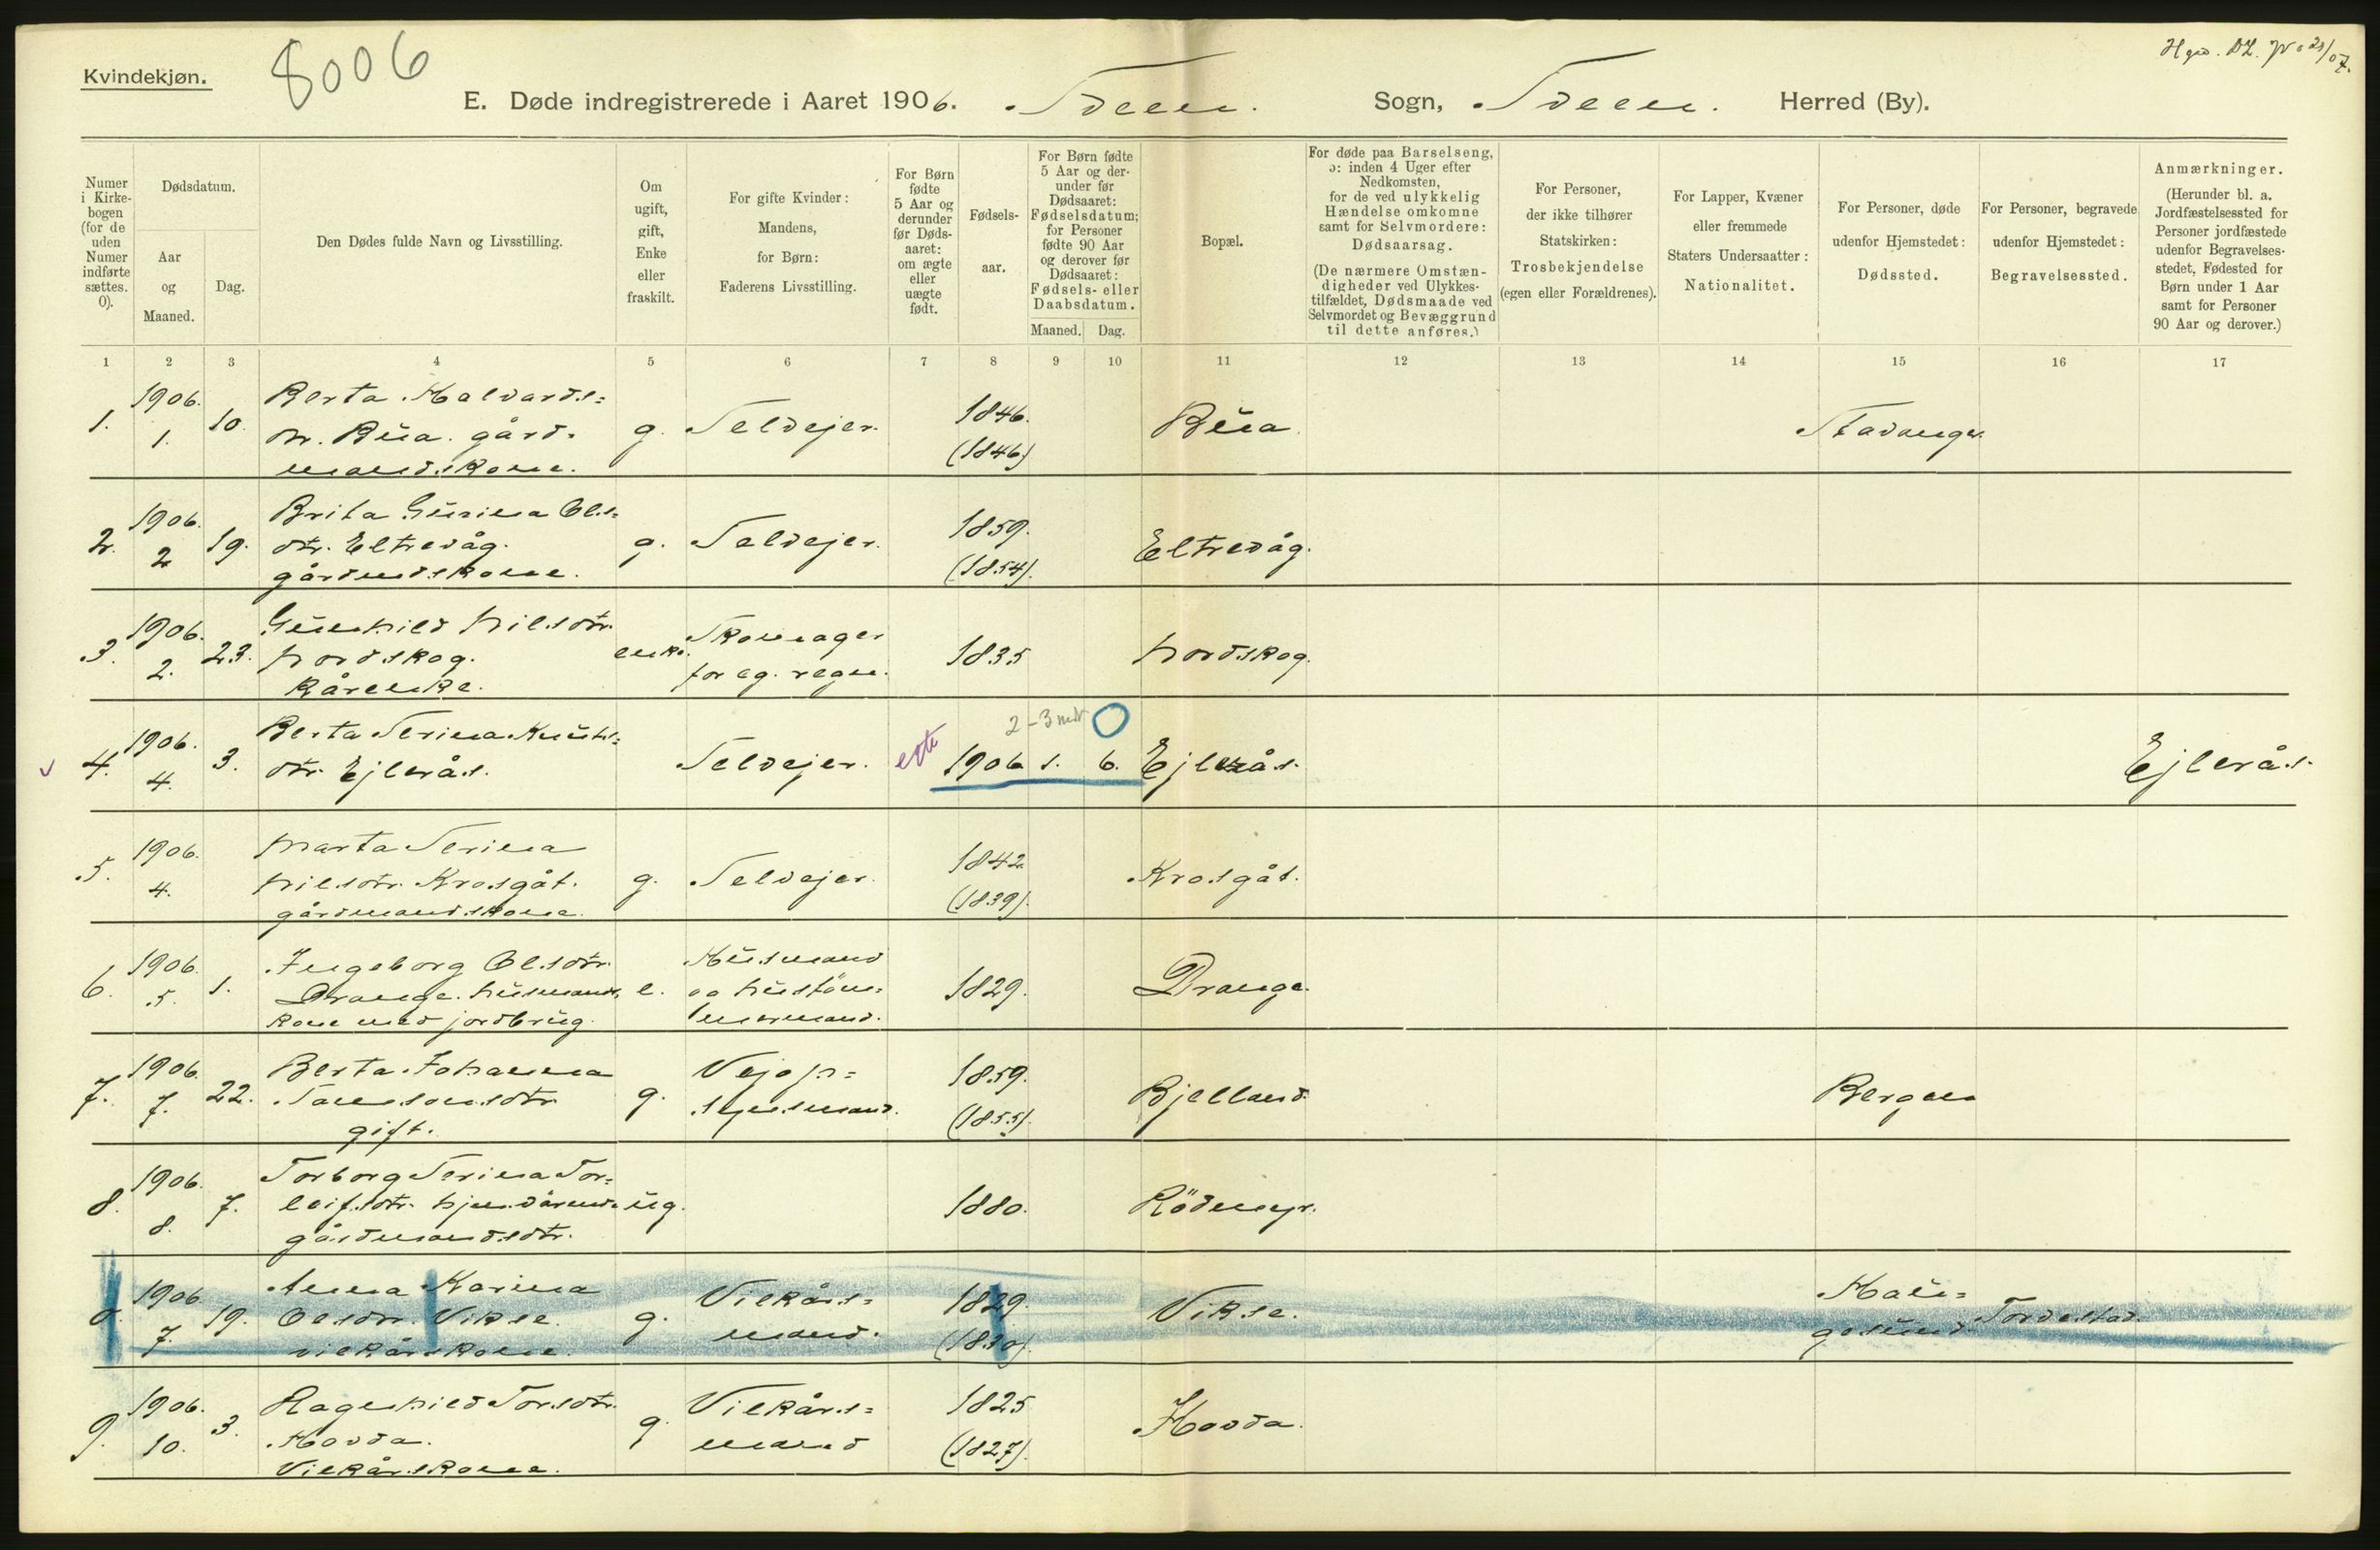 Kvindekjøn.
8006
E. Døde indregistrerede i Aaret 1906. Sveen. Sogn, Sveen. Herred (By).
Numer i Kirkebogen (for de uden Numer indførte sættes. 0).
Dødsdatum.
Aar og Maaned.
Dag.
Den Dødes fulde Navn og Livsstilling.
Om ugift, gift, Enke eller fraskilt.
For gifte Kvinder: Mandens, for Børn: Faderens Livsstilling.
For Børn fødte 5 Aar og derunder før Dødsaaret: om ægte eller uægte født.
Fødselsaar.
For Børn fødte 5 Aar og derunder før Dødsaaret: Fødselsdatum; for Personer fødte 90 Aar og derover før Dødsaaret: Fødsels- eller Daabsdatum.
Maaned. Dag.
Bopæl.
For døde paa Barselseng, ɔ: inden 4 Uger efter Nedkomsten, for de ved ulykkelig Hændelse omkomne samt for Selvmordere: Dødsaarsag.
(De nærmere Omstændigheder ved Ulykkestilfældet, Dødsmaade ved Selvmordet og Bevæggrund til dette anføres.)
For Personer, der ikke tilhører Statskirken: Trosbekjendelse (egen eller Forældrenes).
For Lapper, Kvæner eller fremmede Staters Undersaatter: Nationalitet.
For Personer, døde udenfor Hjemstedet: Dødssted.
For Personer, begravede udenfor Hjemstedet: Begravelsessted.
Anmærkninger.
(Herunder bl. a. Jordfæstelsessted for Personer jordfæstede udenfor Begravelsesstedet, Fødested for Børn under 1 Aar samt for Personer 90 Aar og derover.)
1 2 3 4 5 6 7 8 9 10 11 12 13 14 15 16 17
1. 1906. 1. 10. Berta Halvards= dr. Bua. gårdmandskone. g. Selvejer. 1846. (1846) Bua. Stavanger.
2. 1906. 2 19. Brita Gurina Ols= dtr. Eltrevåg. gårdmdskone. g. Selvejer. 1859. (1854). Eltrevåg.
3. 1906. 2. 23. Gunhild Nilsdtr. Nordskog. Kårenke. enke. for eg. regn. 1835 Nordskog.
4. 1906. 4. 3. Berta Serina Knuts= dtr. Ejlerås. Selvejer. egte 1906 1. 6. 2-3 mdr Ejlerås. Ejlerås.
5. 1906. 4. Marta Serina Nilsdtr. Krosgåt. gårdmandskone. g. Selvejer. 1842 (1839). Krosgåt.
6. 1906. 5. 1. Ingeborg Olsdtr. Drange. husmands kone med jordbrug. e. Husmand og hustöm= mermand. 1829. Drange.
7. 1906. 7. 22. Berta Johanna Tannesdtr. gift. g. Vejop= synsmand. 1859. (1855). Bjelland. Bergen
8. 1906. 8. 7. Torborg Serina Tor= leifsdtr. gårdmandsdtr. ug. 1880. Rödmyr.
0. 1906 7. 19. Anna Karina Olsdtr. Vikse. vilkårskone. g. Vilkårs= mand. 1829. (1830). Vikse. Hau= gesund. Tordestad.
9. 1906. 10. 3. Ragnhild Torsdtr. Hovda. Vilkårskone. g. Vilkårs= mand 1825 (1827). Hovda.